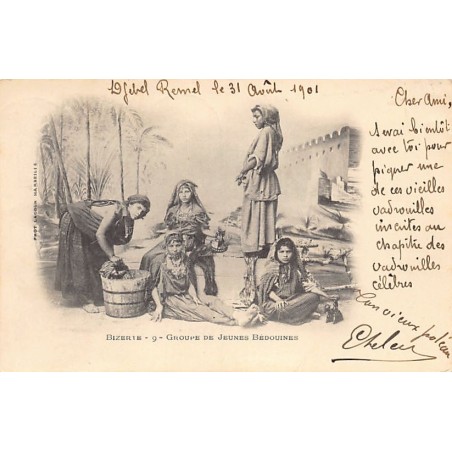 Djebel Remel le 31 Août 1901
Cher Ami,
Serai bientôt
avec toi pour
piquer une
de ces vieilles
vadrouilles
inscrites au
chapitre des
vadrouilles
célèbres
Ton vieux poteau
PHOT. LACOUR. MARSEILLE
BIZERTE - 9 - GROUPE DE JEUNES BÉDOUINES